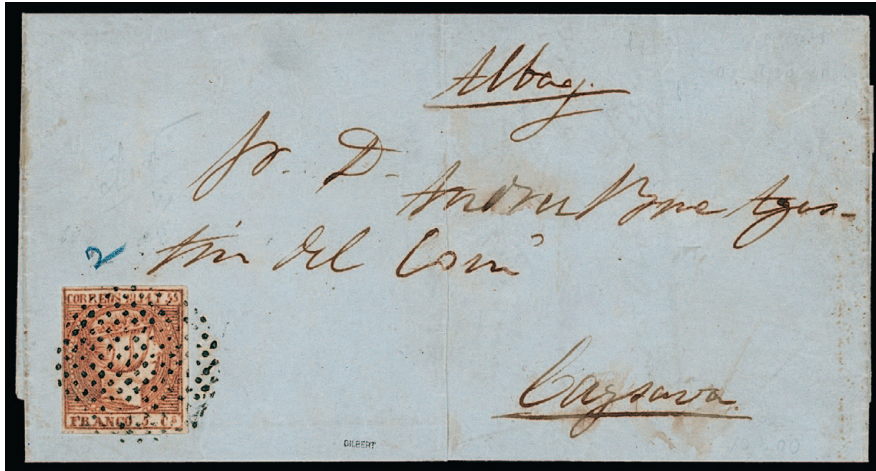 Albay.
Sr. D.
Andres Pone Agus-
tin del Com^o
2
CORREOS 1854 Y 55
FRANCO. 5. C^s
Cagsava
GILBERT